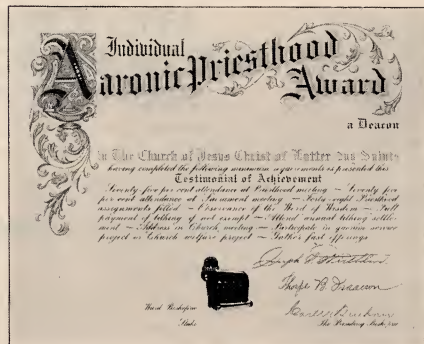 Individual
Aaronic Priesthood
Award
a Deacon
in The Church of Jesus Christ of Latter Day Saints
having completed the following minimum requirements is presented this
Testimonial of Achievement
Seventy five per cent attendance at Priesthood meeting — Seventy five
per cent attendance at Sacrament meeting — Forty-eight Priesthood
assignments filled — Observance of the Word of Wisdom — Full
payment of tithing if not exempt — Attend annual tithing settle-
ment — Address in Church meeting — Participate in quorum service
project or Church welfare project — Gather fast offerings
Joseph L. Wirthlin
Thorpe B. Isaacson
Ward Bishopric
Stake
The Presiding Bishopric